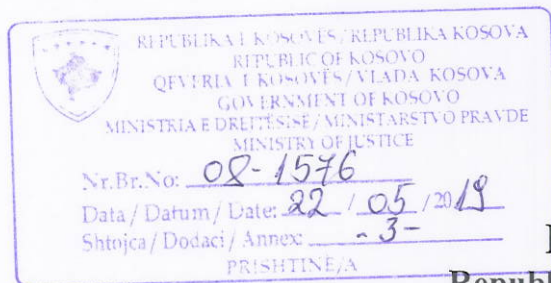 REPUBLIKA E KOSOVËS / REPUBLIKA KOSOVA
REPUBLIC OF KOSOVO
QEVERIA E KOSOVËS / VLADA KOSOVA
GOVERNMENT OF KOSOVO
MINISTRIA E DREJTËSISË / MINISTARSTVO PRAVDE
MINISTRY OF JUSTICE
Nr.Br.No: 08-1576
Data / Datum / Date: 22 / 05 / 2019
Shtojca / Dodaci / Annex: -3-
PRISHTINË/A
Republ